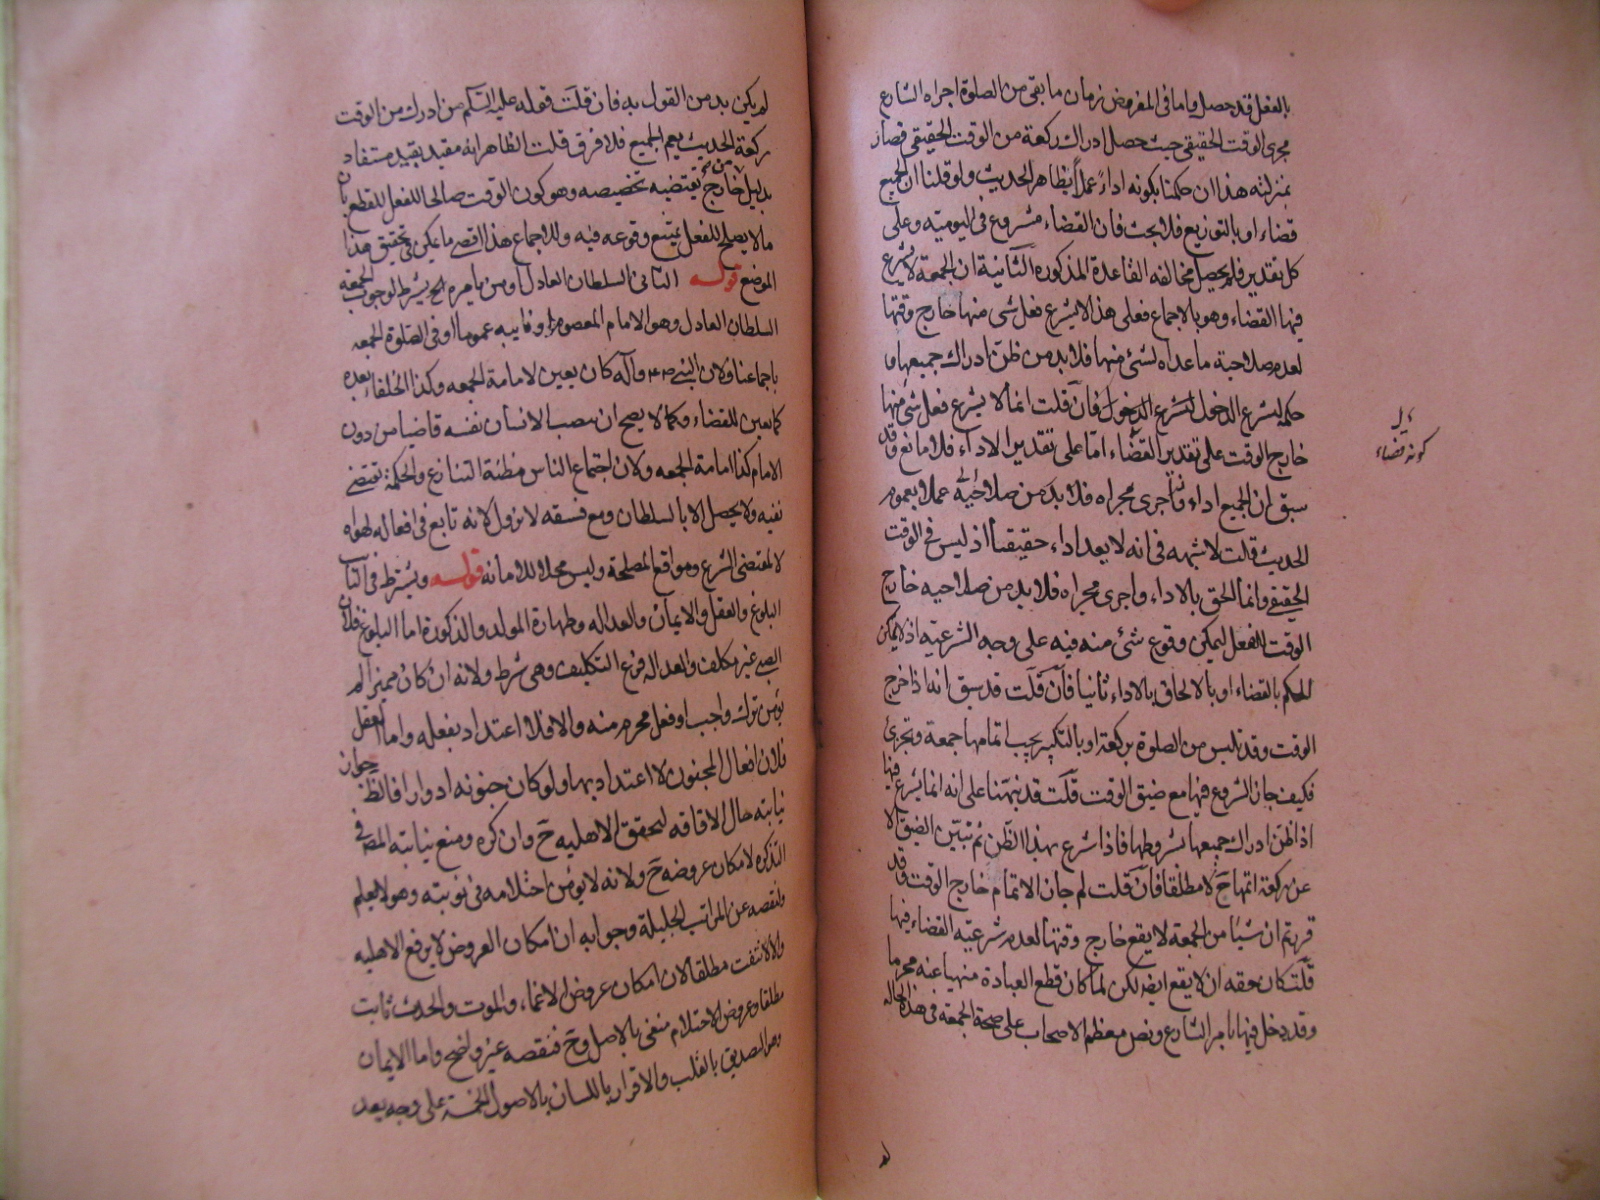 بالفعل قد حصل واما فى المفروض زمان ما بقى من الصلوة اجراه الشارع
مجرى الوقت الحقيقى حيث حصل ادراك ركعة من الوقت الحقيقى فصار
بمنزلته هذا ان حكمنا بكونه اداءً عملاً بظاهر الحديث ولو قلنا ان الجميع
قضاء او بالتوزيع فلا بحث فان القضاء مشروع فى اليومية وعلى
كل تقدير فلم يحصل مخالفه القاعدة المذكورة الثانية ان الجمعة لا يشرع
فيها القضاء وهو بالاجماع فعلى هذا لا يشرع فعل شئ منها خارج وقتها
لعدم صلاحية ما عداه لشئ منها فلا بد من ظن ادراك جميعها و
حكم بشرع الدخول ليشرع الدخول فان قلت انما لا يشرع فعل شئ منها
خارج الوقت على تقدير القضاء امّا على تقدير الاداء فلا مانع وقد
سبق ان الجميع اداء واجرى مجراه فلا بد من صلاحية عملا بعموم
الحديث قلت لا شبهه فى انه لا يعد اداء حقيقتا اذ ليس فى الوقت
الحقيقى وانما الحق بالاداء واجرى مجراه فلا بد من صلاحيه خارج
الوقت للفعل ليمكن وقوع شئ منه فيه على وجه الشرعيه اذ لا يمكن
الحكم بالقضاء او بالالحاق بالاداء ثانيا فان قلت قد سبق انه اذا خرج
الوقت وقد تلبس من الصلوة بركعة او بالتكبير يجب اتمامها جمعة وتجزى
فكيف جاز الشروع فيها مع ضيق الوقت قلت قد نبهنا على انه انما يشرع فيها
اذا ظن ادراك جميعها بشروطها فاذا شرع بهذا الظن ثم تبين الضيق الا
عن ركعة اتمها ح لا مطلقا فان قلت لم جاز الاتمام خارج الوقت وقد
قررتم ان شيا من الجمعة لا يقع خارج وقتها لعدم شرعيه القضاء فيها
قلت كان حقه ان لا يقع ايضا لكن لما كان قطع العبادة منهيا عنه محرما
وقد دخل فيها بامر الشارع ونص معظم الاصحاب على صحة الجمعة فى هذه الحاله
كونه قضاء
لم يكن بد من القول به فان قلت قوله عليه السلم من ادرك من الوقت
ركعة الحديث يعم الجميع فلا فرق قلت الظاهر انه مقيد بقييد مستفاد
بدليل من خارج يقتضيه تخصيصه وهو كون الوقت صالحا للفعل للقطع بان
ما لا يصلح للفعل يمتنع وقوعه فيه وللاجماع هذا اقصى ما يمكن فى تحقيق هذا
الموضع قوله الثانى السلطان العادل او من يامره الخ يشرط لوجوب الجمعة
السلطان العادل وهو الامام المعصوم او نايبه عموما او فى الصلوة الجمعه
باجماعنا ولان النبى ص وآله كان يعين لامامة الجمعه وكذا الخلفاء بعده
كما يعين للقضاء وكما لا يصح ان ينصب الانسان نفسه قاضيا من دون
الامام كذا امامة الجمعه ولان اجتماع الناس مظنة التنازع والحكمة تقتضى
نفيه ولا يحصل الا بالسلطان ومع فسقه لا يزول لانه تابع فى افعاله لهواه
لا لمقتضى الشرع ومواقع المصلحة وليس محلا للامانه قوله ويشترط فى النايب
البلوغ والعقل والايمان والعداله وطهارة المولد والذكورة اما البلوغ فلان
الصبى غير مكلف والعداله فرع التكليف وهى شرط ولانه ان كان مميزا لم
يؤمن ترك واجب او فعل محرم منه والا فلا اعتداد بفعله واما العقل
فلان افعال المجنون لا اعتداد بها ولو كان جنونه ادوارا فالظ جواز
نيابته حال الافاقه لتحقق الاهليه ح وان كره ومنع نيابته المص فى
التذكرة لامكان عروضه ح ولانه لا يؤمن احتلامه فى نوبته وهو لا يعلم
ولنقصه عن المراتب الجليلة وجوابه ان امكان العروض لا يرفع الاهليه
والا لانتفت مطلقا لان امكان عروض الاغماء والموت والحدث ثابت
مطلقا وعروض الاحتلام منفى بالاصل وح فنقصه غير واضح واما الايمان
وهو التصديق بالقلب والاقرار باللسان بالاصول الخمسة على وجه يعد